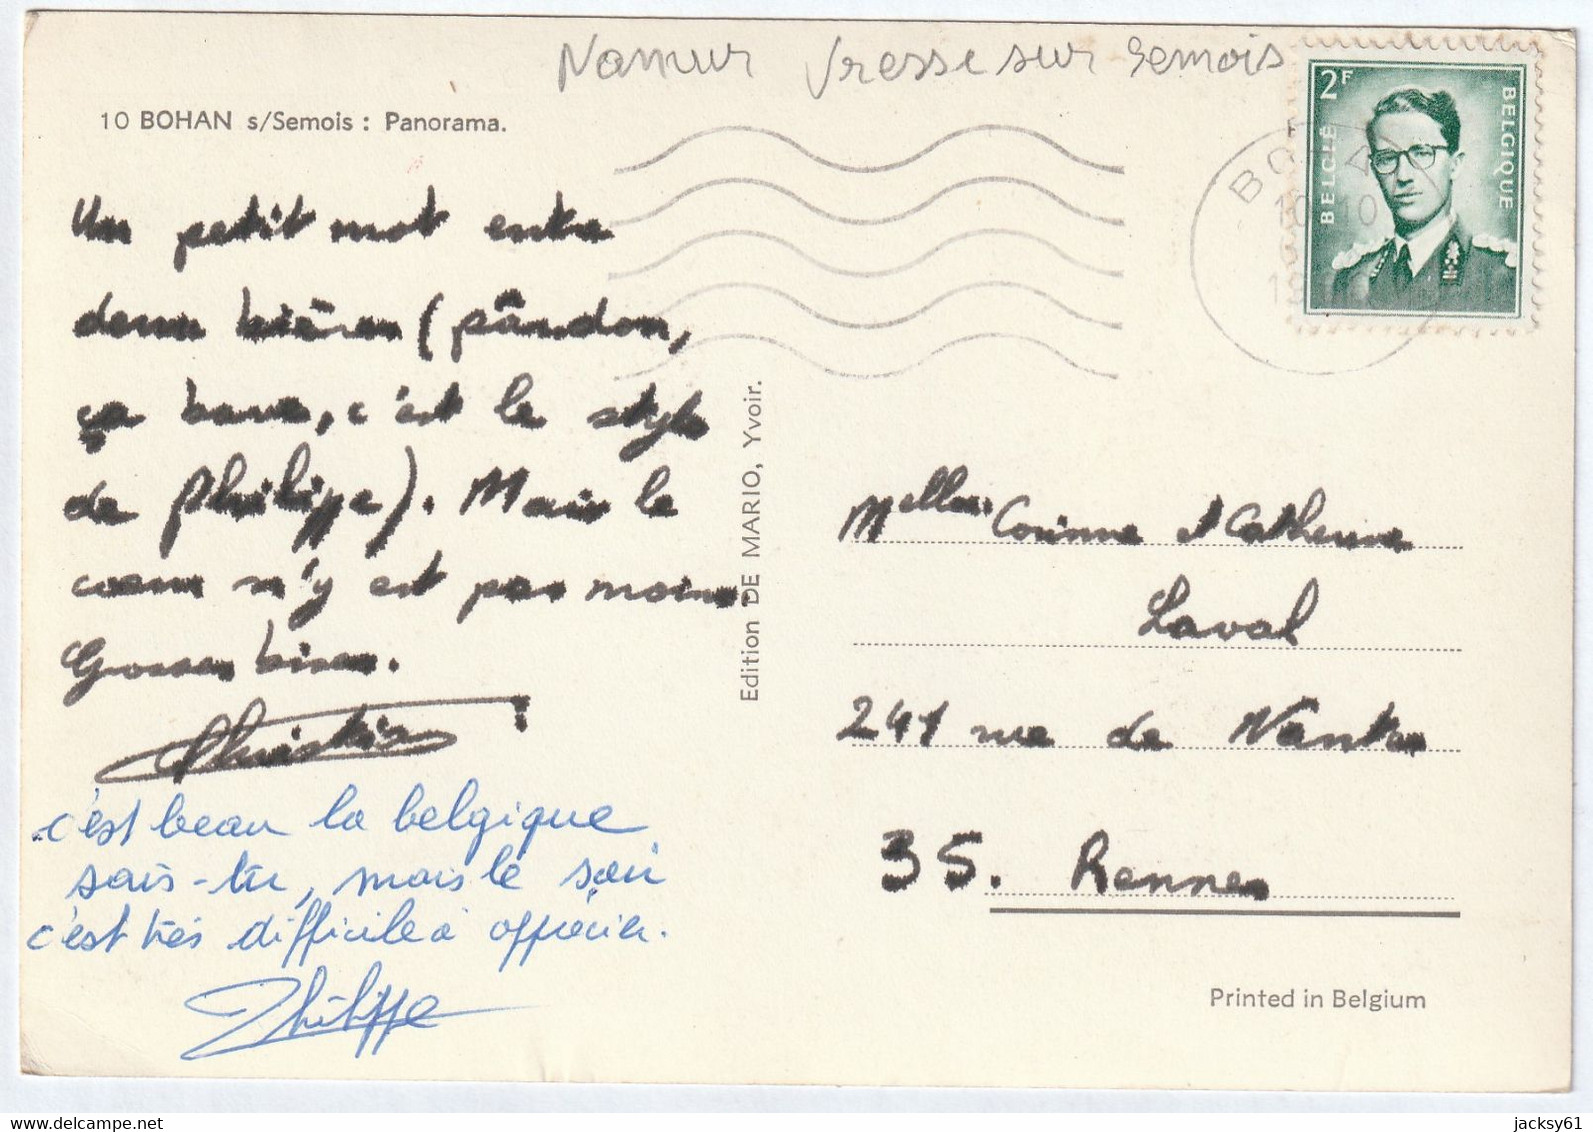 Namur Vresse sur Semois
10 BOHAN s/Semois : Panorama.
2F
BELGIË
BELGIQUE
BOHAN
10 10
19
Un petit mot entre
deux bières (pardon,
ça bave, c'est le style
de Philippe). Mais le
coeur n'y est pas moins.
Grosses bises.
Christian
c'est beau la belgique
sais-tu, mais le soir
c'est très difficile à apprécier.
Philippe
Edition DE MARIO, Yvoir.
Melles Corinne et Catherine
Laval
241 rue de Nantes
35. Rennes
Printed in Belgium
jacksy61